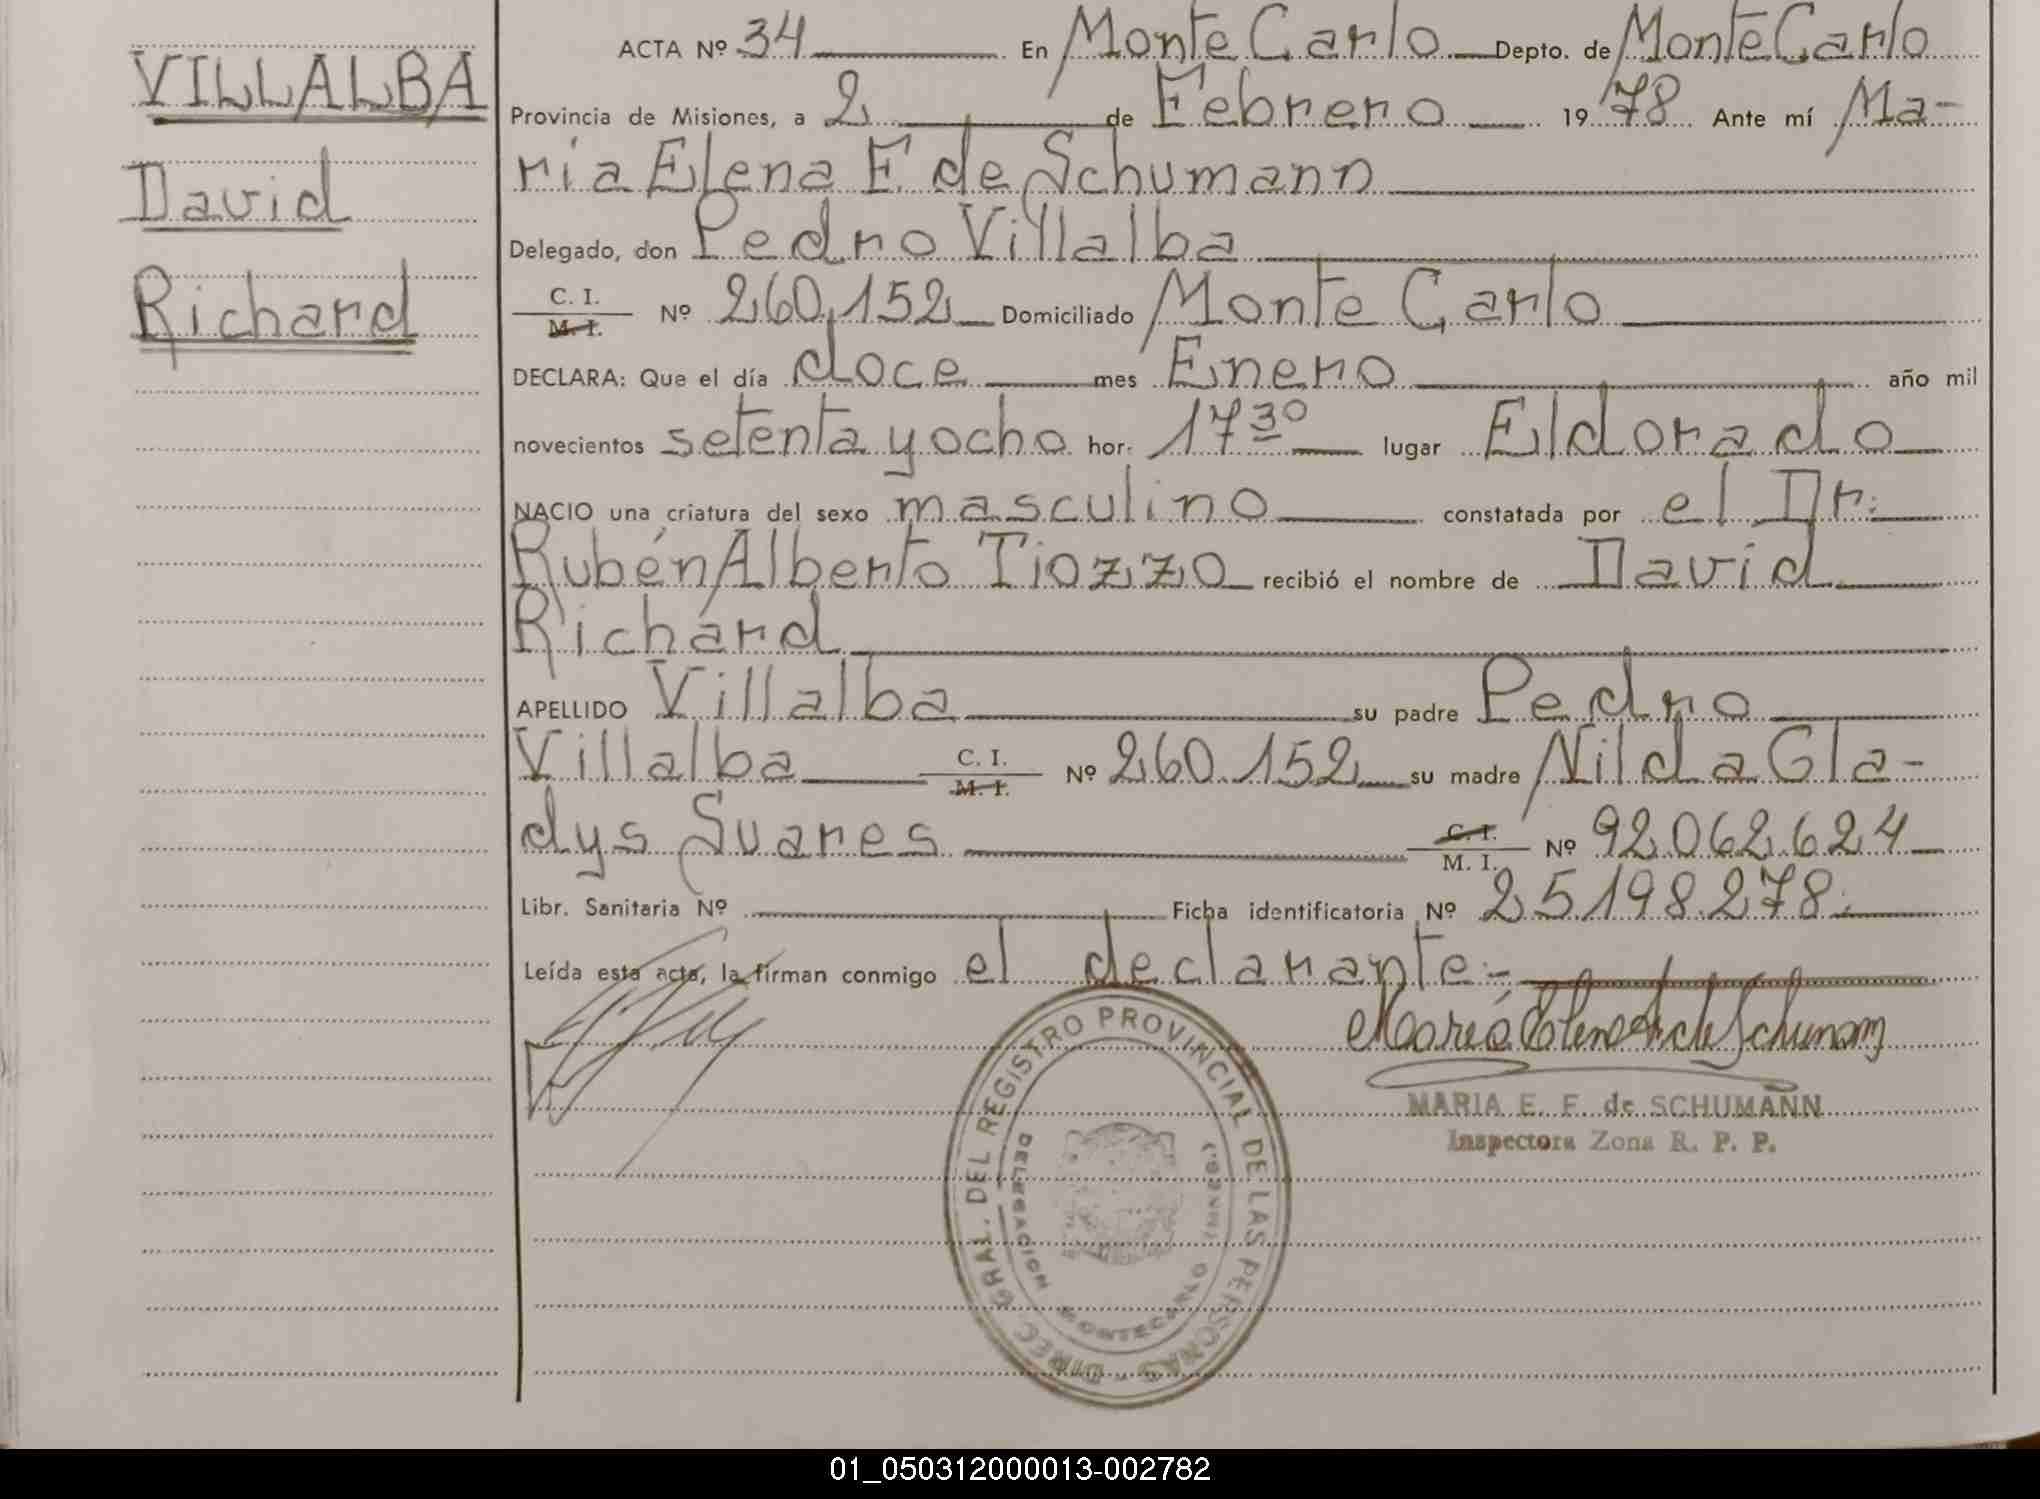 VILLALBA
David
Richard
ACTA Nº 34 En Monte Carlo Depto. de Monte Carlo
Provincia de Misiones, a 2 de Febrero 1978 Ante mí Ma-
ria Elena F. de Schumann
Delegado, don Pedro Villalba
C. I.
M. I. Nº 260.152 Domiciliado Monte Carlo
DECLARA: Que el día doce mes Enero año mil
novecientos setenta y ocho hor. 17 30 lugar Eldorado
NACIO una criatura del sexo masculino constatada por el Dr.
Rubén Alberto Tiozzo recibió el nombre de David
Richard
APELLIDO Villalba su padre Pedro
Villalba C. I. M. I. Nº 260.152 su madre Nilda Gla-
dys Suares C. I. M. I. Nº 92.062.624
Libr. Sanitaria Nº Ficha identificatoria Nº 25.198.278.
Leída esta acta, la firman conmigo el declarante.-
DIREC. GRAL. DEL REGISTRO PROVINCIAL DE LAS PERSONAS
DELEGACION MONTECARLO
MARIA E. F. de SCHUMANN
Inspectora Zona R. P. P.
01_050312000013-002782